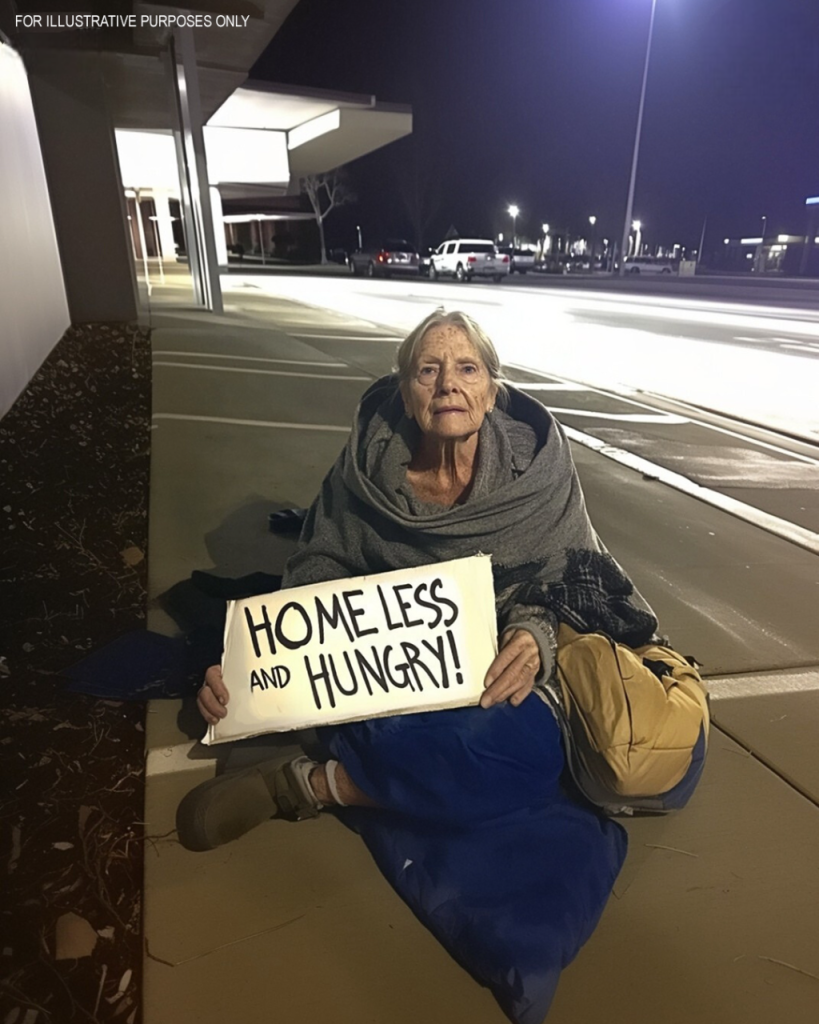 FOR ILLUSTRATIVE PURPOSES ONLY
HOMELESS
AND HUNGRY!